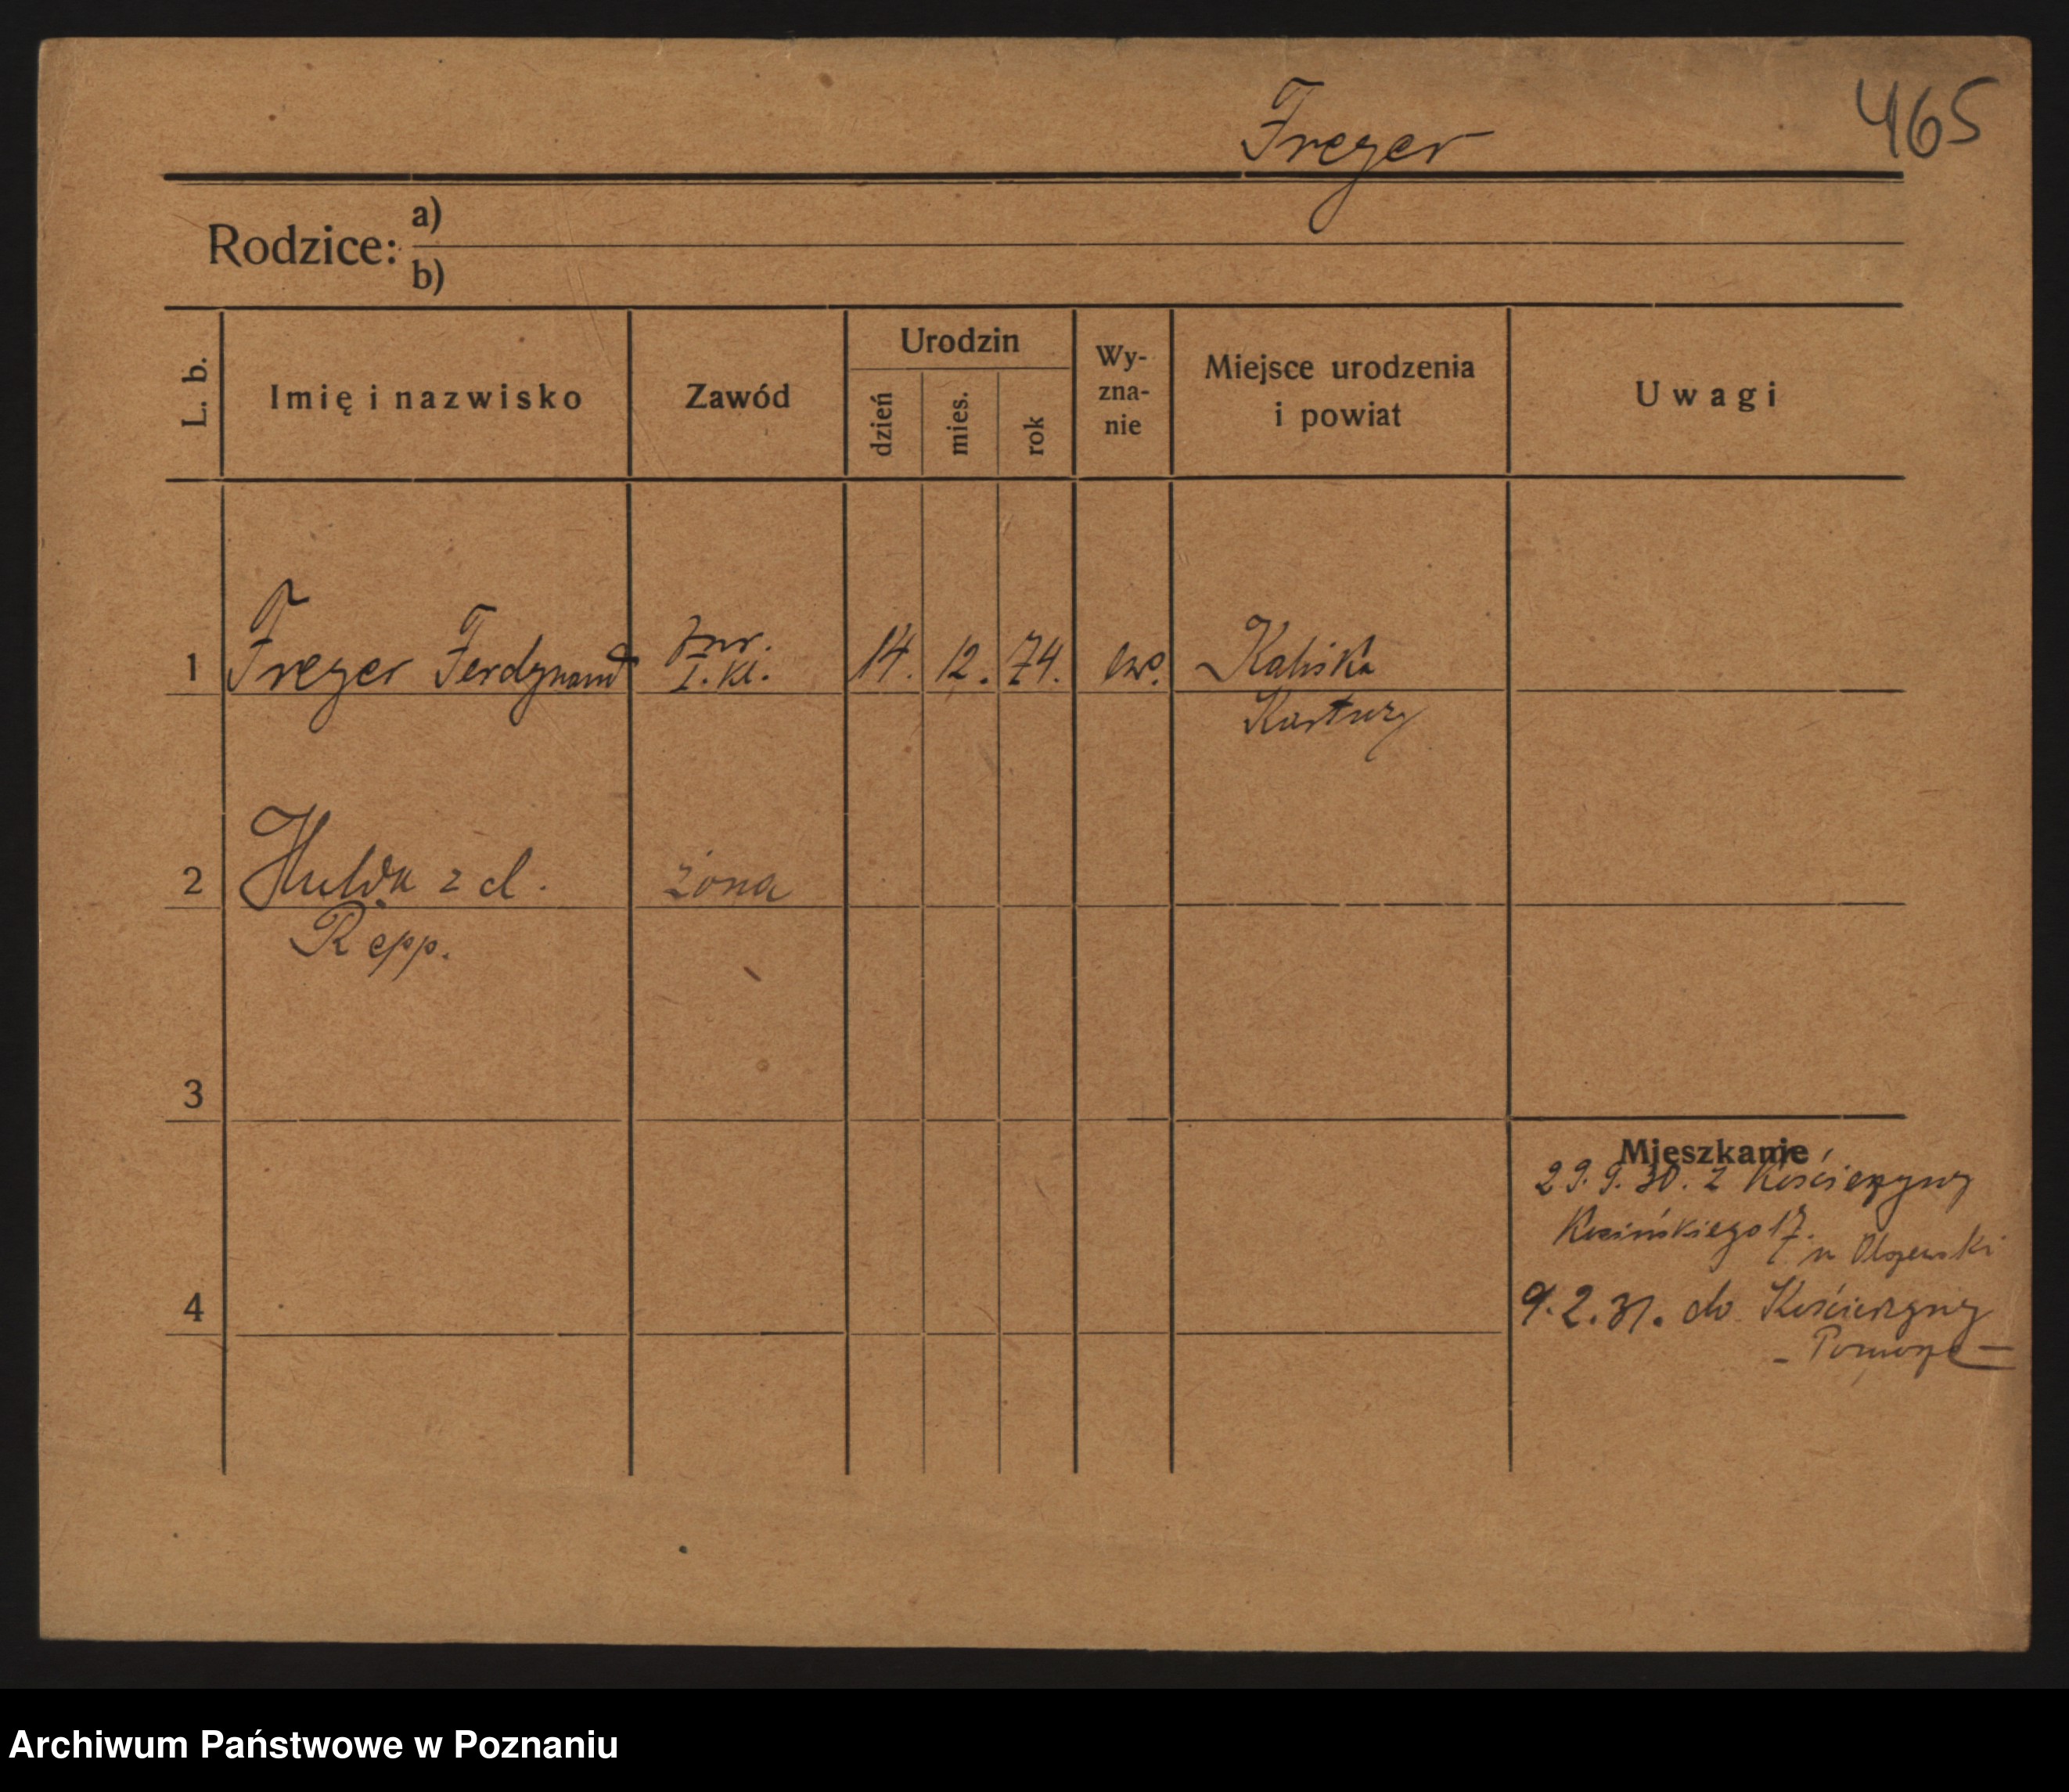 465
Freyer
Rodzice:
a)
b)
L. b.
Imię i nazwisko
Zawód
Urodzin
dzień
mies.
rok
Wy-
zna-
nie
Miejsce urodzenia
i powiat
Uwagi
1 Freyer Ferdynand
I. kl.
14. 12. 74. ew. Kaliska
Kartuzy
2 Hulda z d. żona
Repp.
3
Mieszkanie
29.9.30. z Kościerzyny
17.
4
9.2.31. do Kościerzyny
- Pomorze -
Archiwum Państwowe w Poznaniu